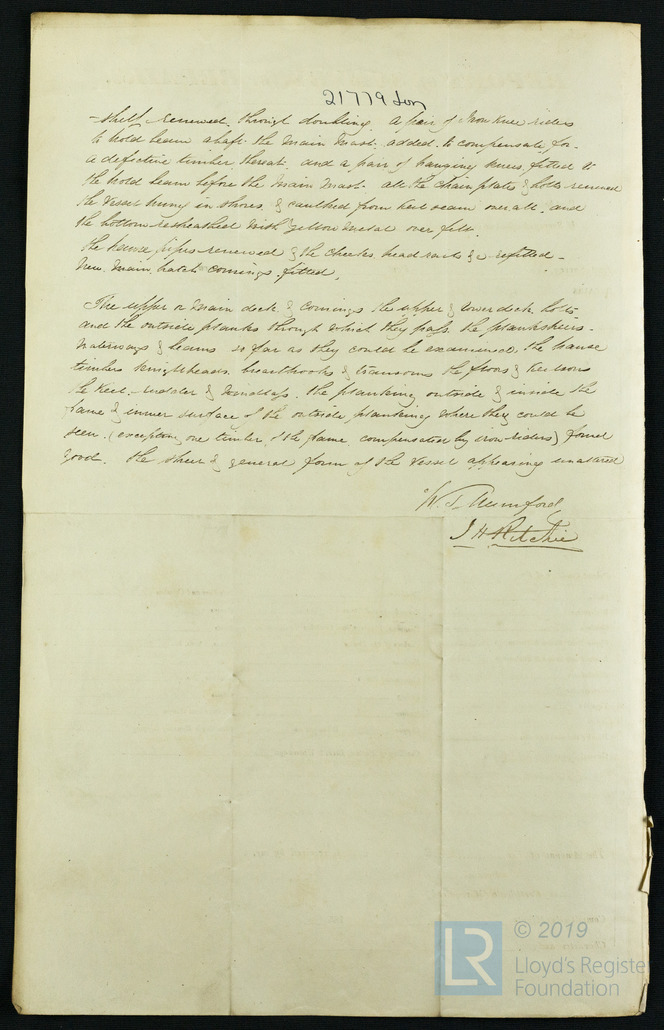 21779 Lon
-shelf renewed through doubling. A pair of Iron knee riders
to hold beam abaft the Main Mast added to compensate for
a defective timber thereat. and a pair of hanging knees fitted to
the hold beam before the Main Mast. all the chain plates & bolts renewed
the Vessel hung in shores, & caulked from keel seam over all. and
the bottom resheathed with Yellow Metal over felt.
the Hawse pipes renewed & the cheeks, head rails &c refitted -
New Main hatch comings fitted.
The upper or Main deck & comings the upper & lower deck bolts
and the outside planks through which they pass the planksheers -
Waterways & beams so far as they could be examined, the hawse
timbers Knightheads breasthooks & transoms the floors & keelsons
the keel. rudder & windlass. the planking outside & inside the
frame & inner surface of the outside planking where they could be
seen. (excepting one timber of the frame compensated by iron riders) found
good. the sheer & general form of the Vessel appearing unaltered
W. T. Mumford
J H Ritchie
© 2019
LR Lloyd's Register
Foundation